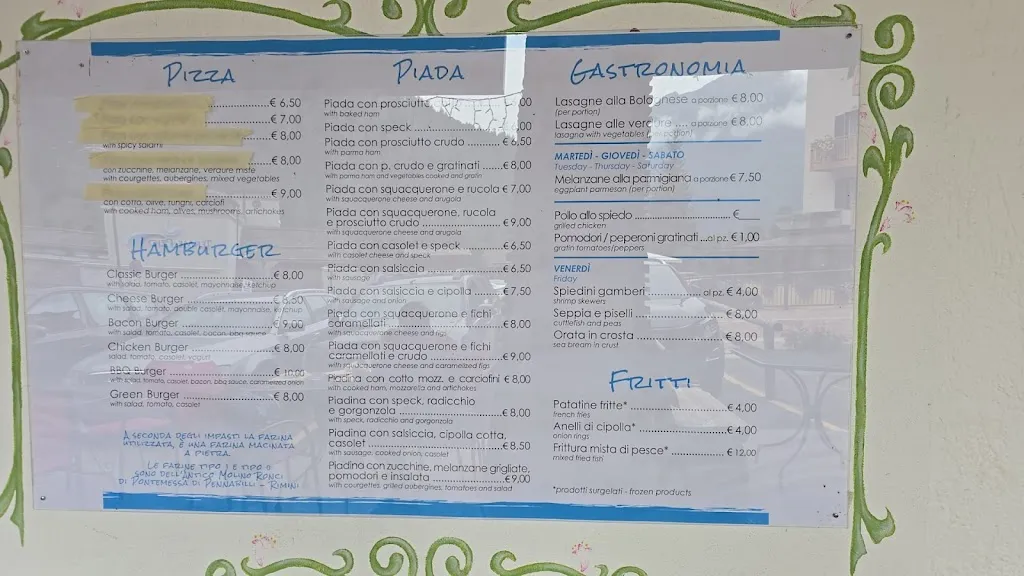 PIZZA
€ 6,50
€ 7,00
€ 8,00
with spicy salami
€ 8,00
con zucchine, melanzane, verdure miste
with courgettes, aubergines, mixed vegetables
€ 9,00
con cotto, olive, funghi, carciofi
with cooked ham, olives, mushrooms, artichokes
HAMBURGER
Classic Burger € 8,00
with salad, tomato, casolet, mayonnaise, ketchup
Cheese Burger € 8,50
with salad, tomato, double casolet, mayonnaise, ketchup
Bacon Burger € 9,00
with salad, tomato, casolet, bacon, bbq sauce
Chicken Burger € 8,00
salad, tomato, casolet, yogurt
BBQ Burger € 10,00
with salad, tomato, casolet, bacon, bbq sauce, caramelized onion
Green Burger € 8,00
with salad, tomato, casolet
A SECONDA DEGLI IMPASTI LA FARINA
UTILIZZATA, È UNA FARINA MACINATA
A PIETRA.
LE FARINE TIPO 1 E TIPO 0
SONO DELL'ANTICO MOLINO RONCI
DI PONTEMESSA DI PENNABILLI - RIMINI
PIADA
Piada con prosciutto
with baked ham
Piada con speck
Piada con prosciutto crudo € 6,50
with parma ham
Piada con p. crudo e gratinati € 8,00
with parma ham and vegetables cooked and gratin
Piada con squacquerone e rucola € 7,00
with squacquerone cheese and arugola
Piada con squacquerone, rucola
e prosciutto crudo € 9,00
with squacquerone cheese and arugola
Piada con casolet e speck € 6,50
with casolet cheese and speck
Piada con salsiccia € 6,50
with sausage
Piada con salsiccia e cipolla € 7,50
with sausage and onion
Piada con squacquerone e fichi
caramellati € 8,00
with squacquerone cheese and figs
Piada con squacquerone e fichi
caramellati e crudo € 9,00
with squacquerone cheese and caramelized figs
Piadina con cotto mozz. e carciofini € 8,00
with cooked ham, mozzarella and artichokes
Piadina con speck, radicchio
e gorgonzola € 8,00
with speck, radicchio and gorgonzola
Piadina con salsiccia, cipolla cotta,
casolet € 8,50
with sausage, cooked onion, casolet
Piadina con zucchine, melanzane grigliate,
pomodori e insalata € 9,00
with courgettes, grilled aubergines, tomatoes and salad
GASTRONOMIA
Lasagne alla Bolognese a porzione € 8,00
(per portion)
Lasagne alle verdure a porzione € 8,00
lasagna with vegetables (per portion)
MARTEDÌ - GIOVEDÌ - SABATO
Tuesday - Thursday - Saturday
Melanzane alla parmigiana a porzione € 7,50
eggplant parmesan (per portion)
Pollo allo spiedo €
grilled chicken
Pomodori / peperoni gratinati ...al pz. € 1,00
gratin tomatoes/peppers
VENERDÌ
Friday
Spiedini gamberi al pz. € 4,00
shrimp skewers
Seppia e piselli € 8,00
cuttlefish and peas
Orata in crosta € 8,00
sea bream in crust
FRITTI
Patatine fritte* € 4,00
french fries
Anelli di cipolla* € 4,00
onion rings
Frittura mista di pesce* € 12,00
mixed fried fish
*prodotti surgelati - frozen products